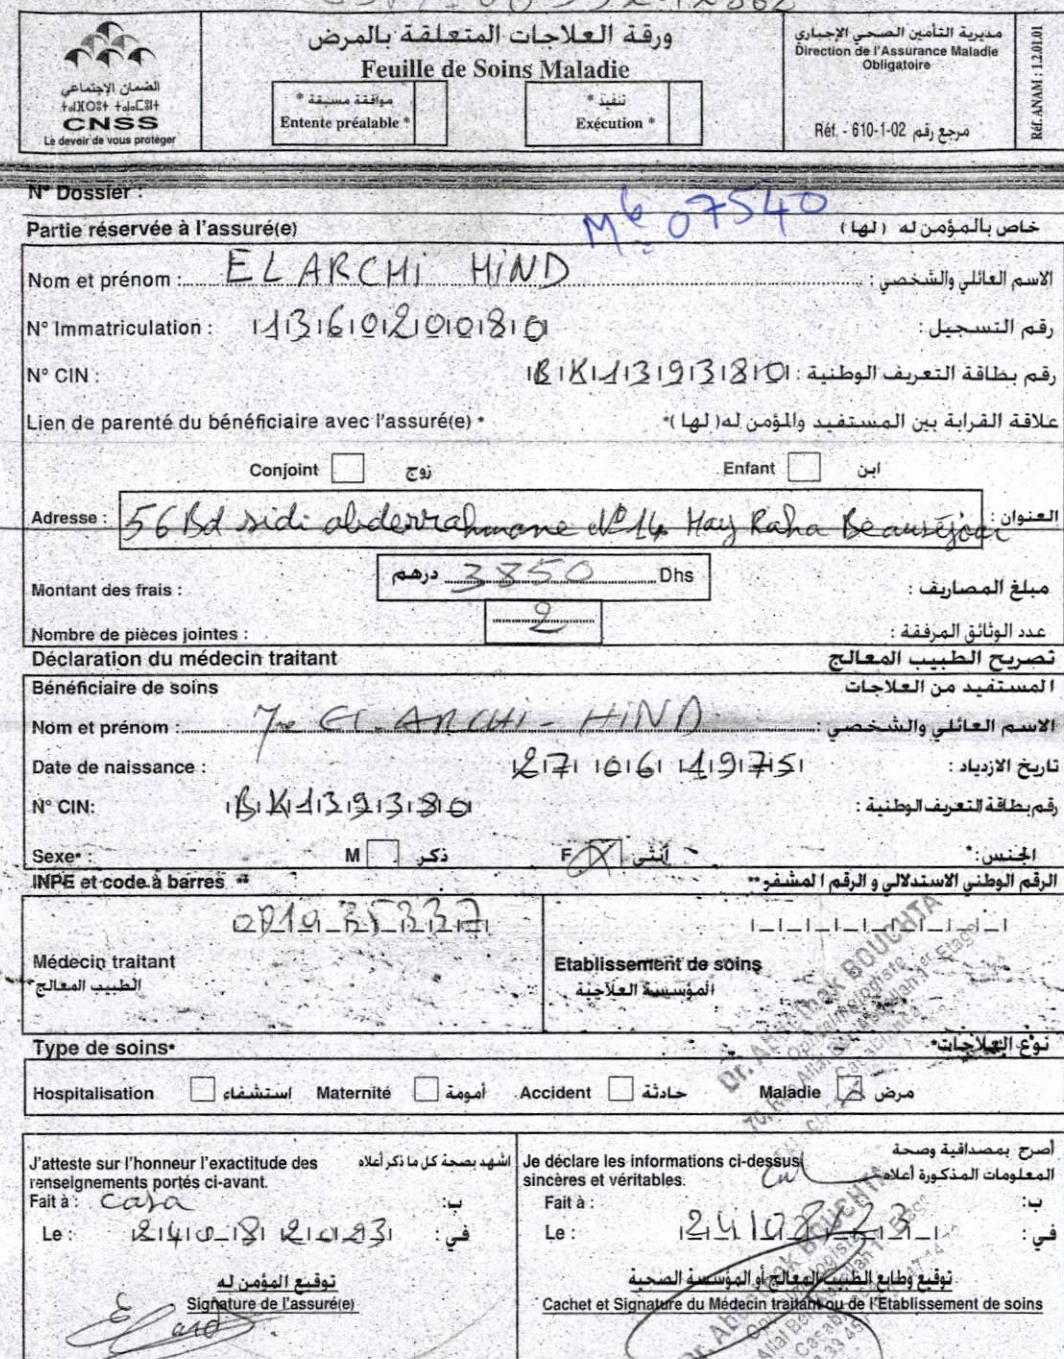 ورقة العلاجات المتعلقة بالمرض
Feuille de Soins Maladie
موافقة مسبقة *
Entente préalable *
تنفيذ *
Exécution *
الضمان الإجتماعي
CNSS
Le devoir de vous protéger
مديرية التأمين الصحي الإجباري
Direction de l'Assurance Maladie
Obligatoire
Réf. - 610-1-02 مرجع رقم
Réf. ANAM : 1.2.01.01
N° Dossier :
07540
Partie réservée à l'assuré(e) خاص بالمؤمن له (لها)
Nom et prénom : EL ARCHI HIND الاسم العائلي والشخصي :
N° Immatriculation : 136021080 رقم التسجيل :
N° CIN : BK139380 رقم بطاقة التعريف الوطنية :
Lien de parenté du bénéficiaire avec l'assuré(e) * علاقة القرابة بين المستفيد والمؤمن له( لها )*
Conjoint زوج Enfant ابن
Adresse : 56 Bd sidi abderrahmane N°14 Hay Raha Beauséjour العنوان :
Montant des frais : درهم 3850 Dhs مبلغ المصاريف :
Nombre de pièces jointes : 2 عدد الوثائق المرفقة :
Déclaration du médecin traitant تصريح الطبيب المعالج
Bénéficiaire de soins المستفيد من العلاجات
Nom et prénom : EL ARCHI - HIND الاسم العائلي والشخصي :
Date de naissance : 27 06 1975 تاريخ الازدياد :
N° CIN: BK139380 رقم بطاقة التعريف الوطنية :
Sexe* : M ذكر F X أنثى الجنس:*
INPE et code à barres ** الرقم الوطني الاستدلالي و الرقم المشفر**
Médecin traitant
الطبيب المعالج
Etablissement de soins
المؤسسة العلاجية
BOUCHTA
Type de soins* نوع العلاجات*
Hospitalisation استشفاء Maternité أمومة Accident حادثة Maladie مرض
J'atteste sur l'honneur l'exactitude des اشهد بصحة كل ما ذكر أعلاه
renseignements portés ci-avant.
Fait à : casa ب:
Le : 24 08 2023 في :
توقيع المؤمن له
Signature de l'assuré(e)
Je déclare les informations ci-dessus أصرح بمصداقية وصحة
sincères et véritables. المعلومات المذكورة أعلاه
Fait à : ب:
Le : 24 08 23 في :
توقيع وطابع الطبيب المعالج أو المؤسسة الصحية
Cachet et Signature du Médecin traitant ou de l'Etablissement de soins